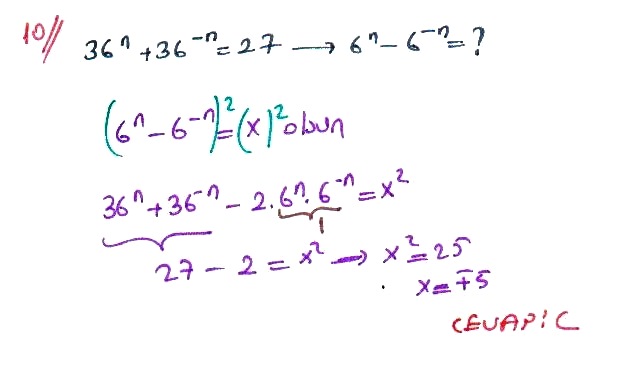 10// 36ⁿ + 36⁻ⁿ = 27 → 6ⁿ - 6⁻ⁿ = ?
(6ⁿ - 6⁻ⁿ)² = (x)² olsun
36ⁿ + 36⁻ⁿ - 2 . 6ⁿ . 6⁻ⁿ = x²
1
27 - 2 = x² → x² = 25
x = ∓5
CEVAP: C